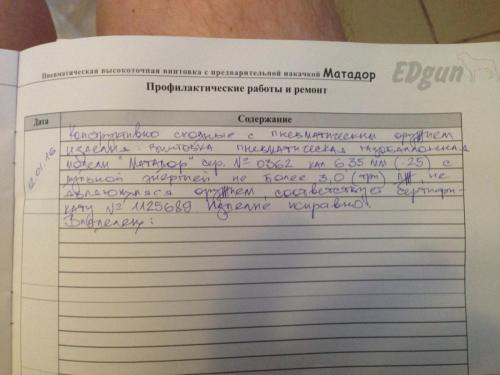 Пневматическая высокоточная винтовка с предварительной накачкой Матадор
EDgun
Профилактические работы и ремонт
Дата Содержание
12.01.16
Конструктивно сходные с пневматическим оружием
изделия: винтовка пневматическая газобаллонная
модели "Матадор" сер. № 0362 кал 6.35 мм (.25) с
дульной энергией не более 3,0 (три) Дж, не
являющаяся оружием соответствует сертифи-
кату № 1125689. Изделие исправно
Владелец: